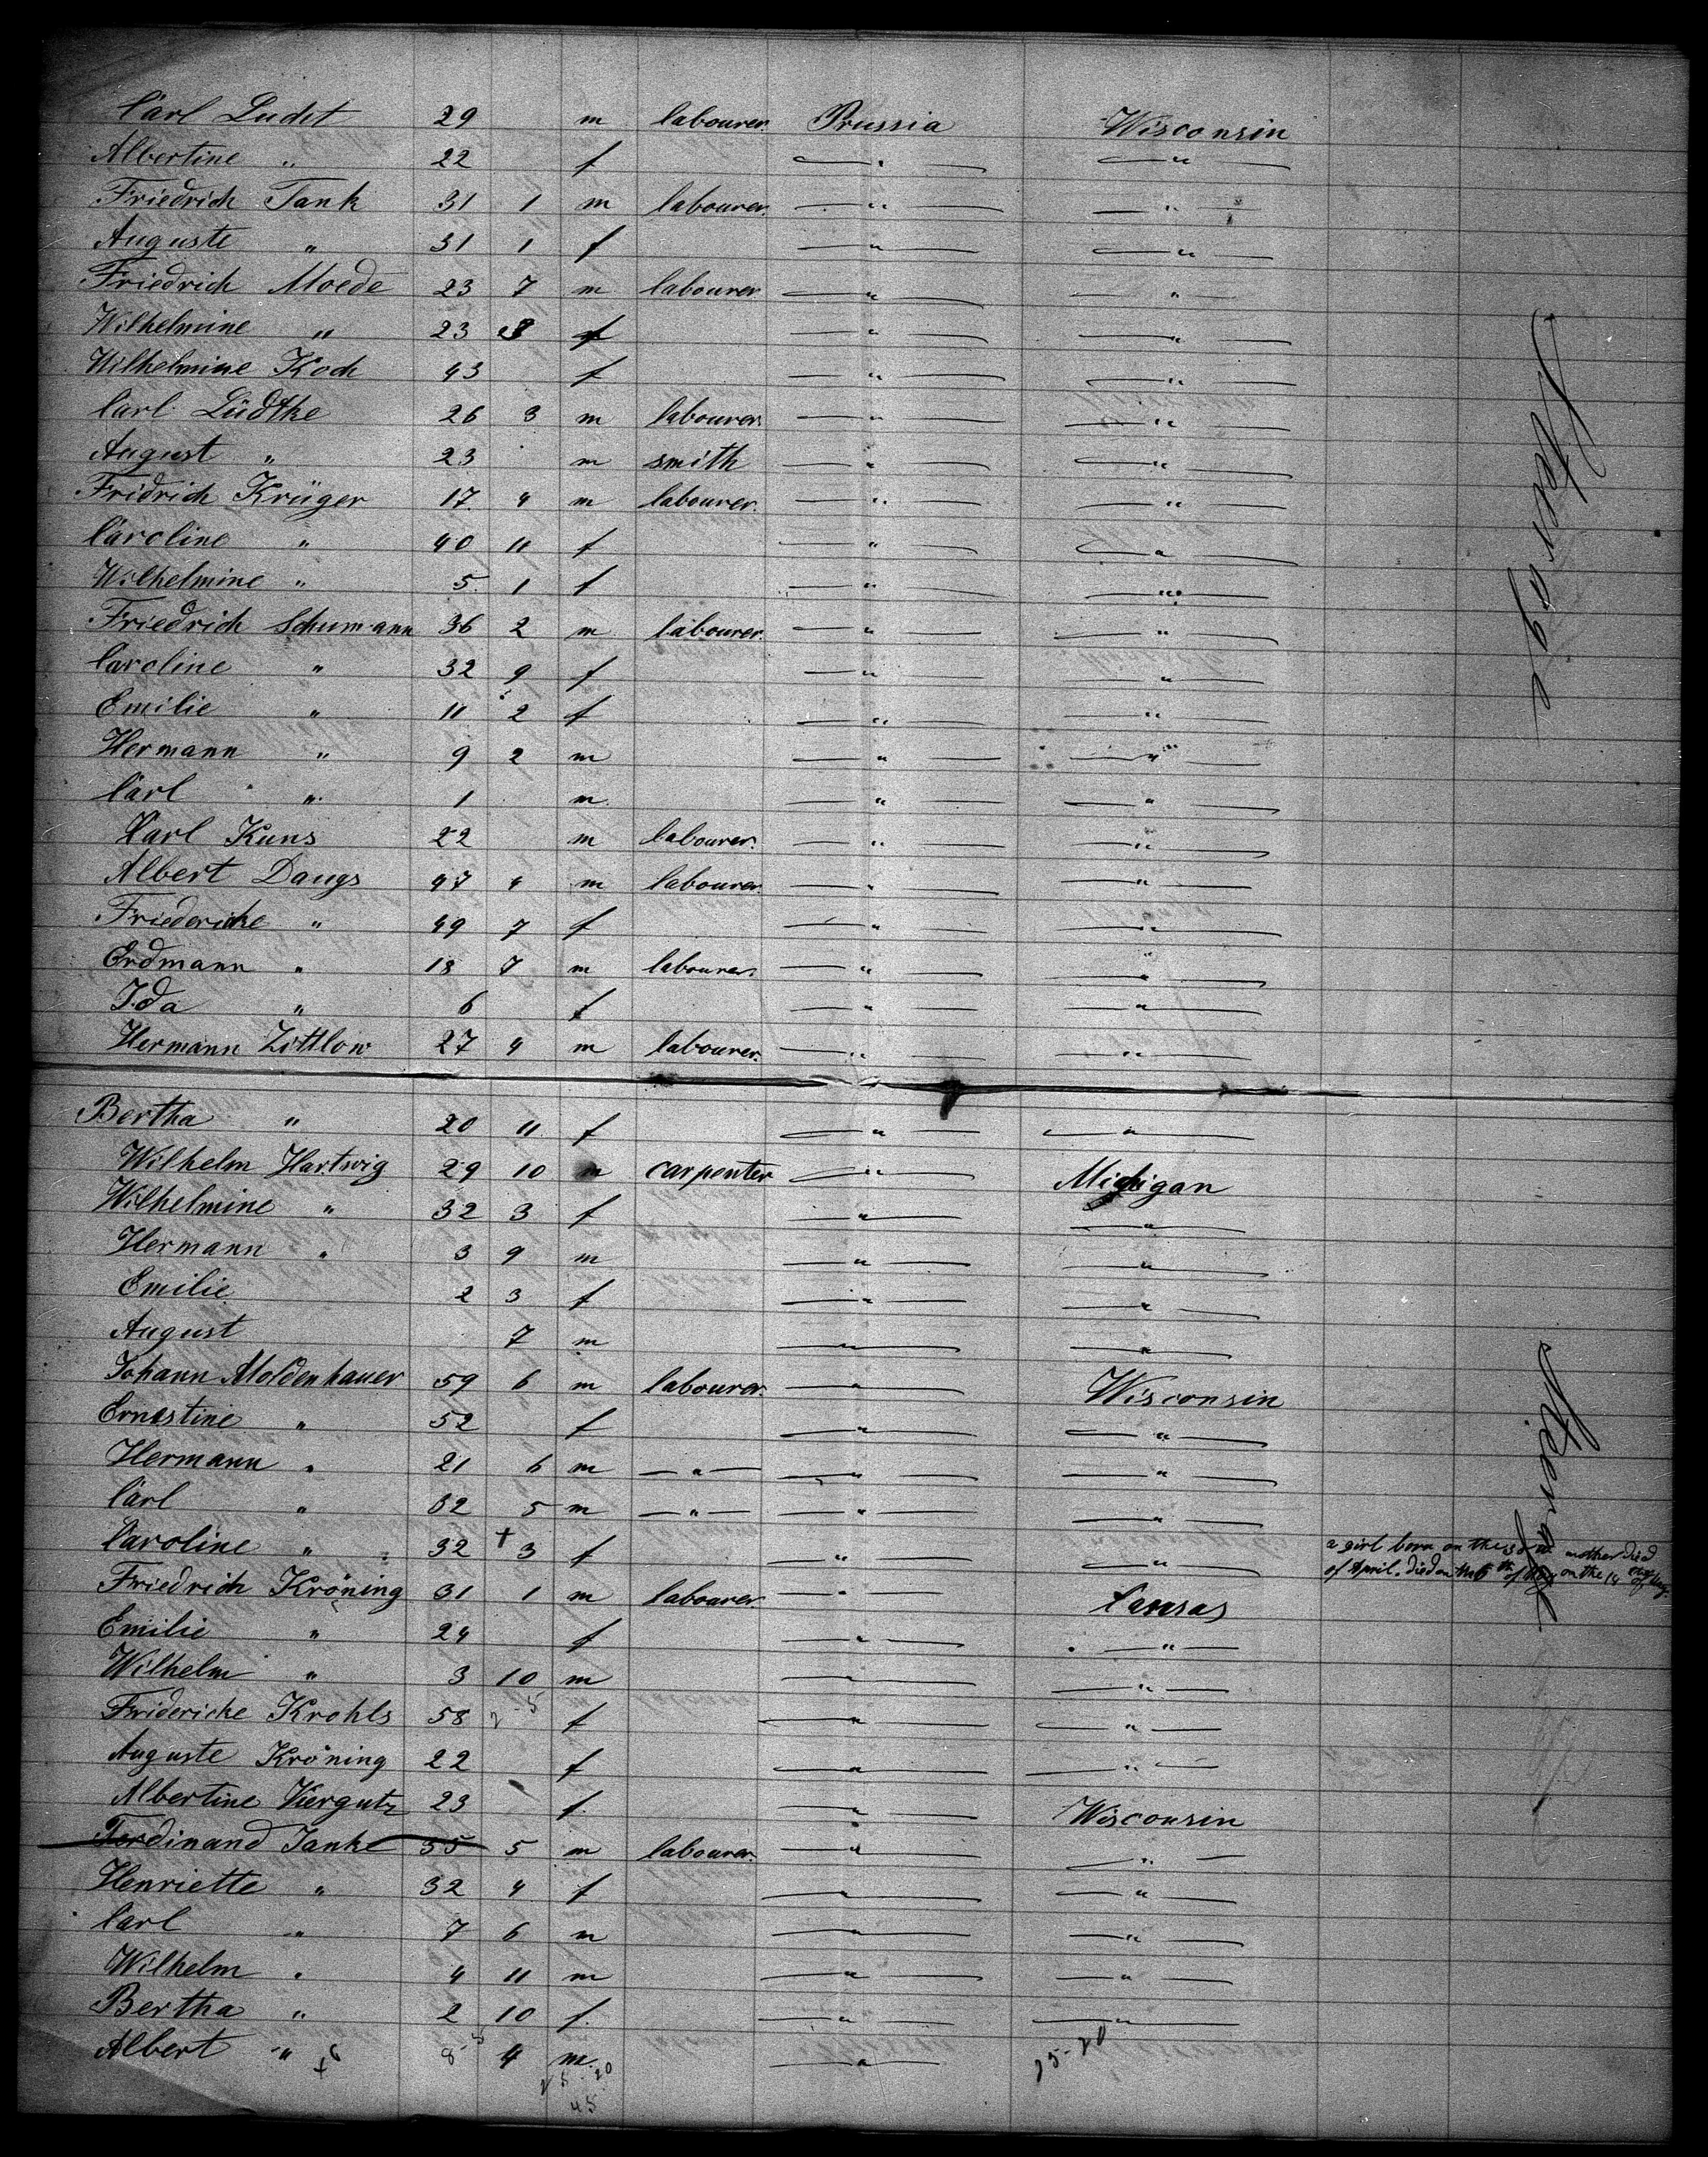 Carl Ludet 29 m labourer. Prussia Wisconsin
Albertine " 22 f " "
Friedrich Tank 31 1 m labourer. " "
Auguste " 31 1 f " "
Friedrich Moede 23 7 m labourer " "
Wilhelmine " 23 f " "
Wilhelmine Koch 43 f " "
Carl Lüdtke 26 3 m labourer. " "
August " 23 m smith " "
Fridrich Krüger 17. 4 m labourer. " "
Caroline " 40 11 f " "
Wilhelmine " 5. 1 f " "
Friedrich Schumann 36 2 m labourer. " "
Caroline " 32 9 f " "
Emilie " 11 2 f " "
Hermann " 9 2 m " "
Carl " 1 m " "
Carl Kuns 22 m labourer. " "
Albert Daugs 47 4 m labourer. " "
Friedericke " 49 7 f " "
Erdmann " 18 7 m labourer. " "
Ida " 6 f " "
Hermann Zittlow 27 4 m labourer. " "
Bertha " 20 11 f " "
Wilhelm Hartwig 29 10 m carpenter " Michigan
Wilhelmine " 32 3 f " "
Hermann " 3 9 m " "
Emilie 2 3 f " "
August 7 m " "
Johann Moldenhauer 59 6 m labourer. " Wisconsin
Ernestine " 52 f " "
Hermann " 21 6 m " " "
Carl " 32 5 m " " "
Caroline " 32 + 3 f " " a girl born on the mother died
of April. died on the of on the 18
Friedrich Kröning 31 1 m labourer. " Cansas
Emilie " 24 f " "
Wilhelm " 3 10 m " "
Fridericke Krohls 58 f " "
Auguste Kröning 22 f " "
Albertine Viergutz 23 f. " Wisconsin
Ferdinand Janke 35 5 m labourer. " "
Henriette " 32 4 f " "
Carl " 7 6 m " "
Wilhelm " 4 11 m " "
Bertha " 2 10 f. " "
Albert " 4 m. " 25-20
25-20
45